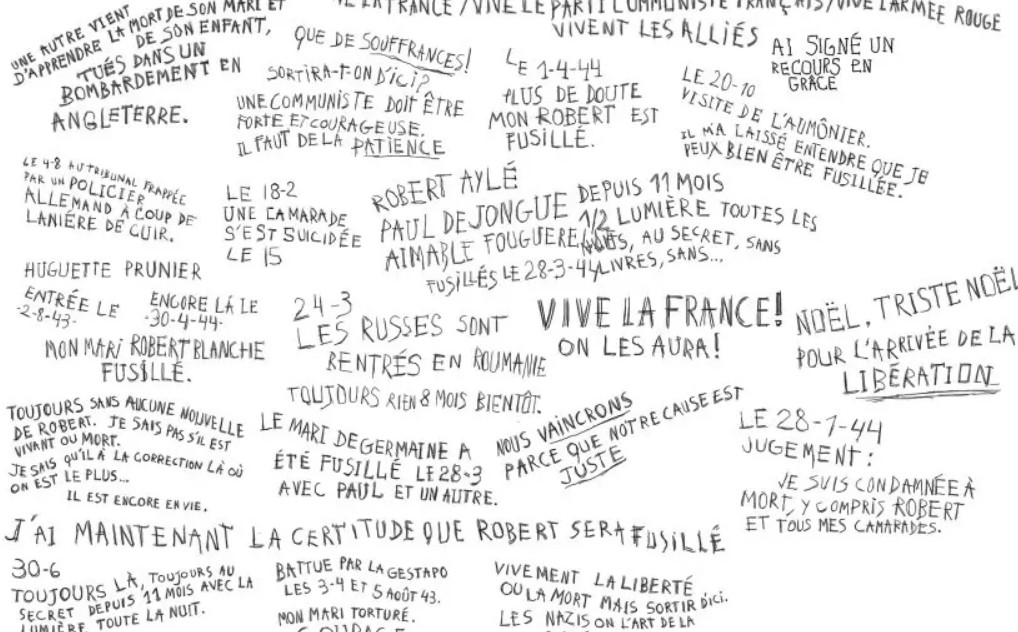 UNE AUTRE VIENT
D'APPRENDRE LA MORT DE SON MARI ET
DE SON ENFANT,
TUÉS DANS UN
BOMBARDEMENT EN
ANGLETERRE.
LA FRANCE / VIVE LE PARTI COMMUNISTE FRANÇAIS / VIVE L'ARMÉE ROUGE
VIVENT LES ALLIÉS
QUE DE SOUFFRANCES!
SORTIRA-T-ON D'ICI?
UNE COMMUNISTE DOIT ÊTRE
FORTE ET COURAGEUSE.
IL FAUT DE LA PATIENCE
LE 1-4-44
PLUS DE DOUTE
MON ROBERT EST
FUSILLÉ.
AI SIGNÉ UN
RECOURS EN
GRÂCE
LE 20-10
VISITE DE L'AUMÔNIER.
IL M'A LAISSÉ ENTENDRE QUE JE
PEUX BIEN ÊTRE FUSILLÉE.
LE 4-8 AU TRIBUNAL FRAPPÉE
PAR UN POLICIER
ALLEMAND À COUP DE
LANIÉRE DE CUIR.
LE 18-2
UNE CAMARADE
S'EST SUICIDÉE
LE 15
ROBERT AYLÉ
PAUL DEJONGUE
AIMABLE FOUGUERE
FUSILLÉS LE 28-3-44
DEPUIS 11 MOIS
1/2 LUMIÈRE TOUTES LES
NUITS, AU SECRET, SANS
LIVRES, SANS...
HUGUETTE PRUNIER
ENTRÉE LE
-2-8-43-
ENCORE LÀ LE
-30-4-44-
MON MARI ROBERT BLANCHE
FUSILLÉ.
24-3
LES RUSSES SONT
RENTRÉS EN ROUMANIE
TOUJOURS RIEN 8 MOIS BIENTÔT.
VIVE LA FRANCE!
ON LES AURA!
NOËL, TRISTE NOËL
POUR L'ARRIVÉE DE LA
LIBÉRATION
TOUJOURS SANS AUCUNE NOUVELLE
DE ROBERT. JE SAIS PAS S'IL EST
VIVANT OU MORT.
JE SAIS QU'IL À LA CORRECTION LÀ OÙ
ON EST LE PLUS...
IL EST ENCORE EN VIE.
LE MARI DE GERMAINE A
ÉTÉ FUSILLÉ LE 28-3
AVEC PAUL ET UN AUTRE.
NOUS VAINCRONS
PARCE QUE NOTRE CAUSE EST
JUSTE
LE 28-7-44
JUGEMENT:
JE SUIS CONDAMNÉE À
MORT, Y COMPRIS ROBERT
ET TOUS MES CAMARADES.
J'AI MAINTENANT LA CERTITUDE QUE ROBERT SERA FUSILLÉ
30-6
TOUJOURS LÀ, TOUJOURS AU
SECRET DEPUIS 11 MOIS AVEC LA
LUMIÈRE TOUTE LA NUIT.
BATTUE PAR LA GESTAPO
LES 3-4 ET 5 AOÛT 43.
MON MARI TORTURÉ.
COURAGE
VIVEMENT LA LIBERTÉ
OU LA MORT MAIS SORTIR D'ICI.
LES NAZIS ON L'ART DE LA